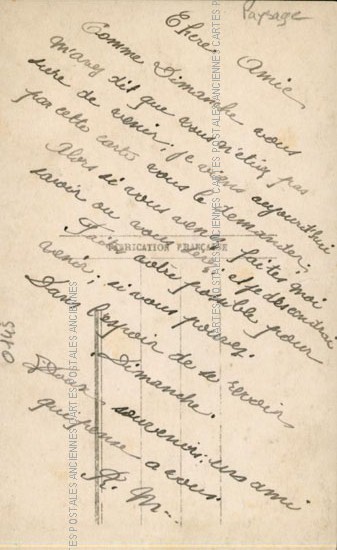 Paysage
Chère Amie
Comme Dimanche vous
m'avez dit que vous n'étiez pas
sure de venir, je viens aujourd'hui
par cette carte vous le demander,
Alors si vous venez faites moi
savoir ou vous et je descendrai
FABRICATION FRANÇAISE
votre possible pour
venir, si vous pouvez.
Dans l'espoir de se revoir
Dimanche.
Doux souvenirs, un ami
qui pense a vous.
R. M...
0145
CARTES POSTALES ANCIENNES CARTES POSTALES ANCIENNES CARTES POSTALES ANCIENNES